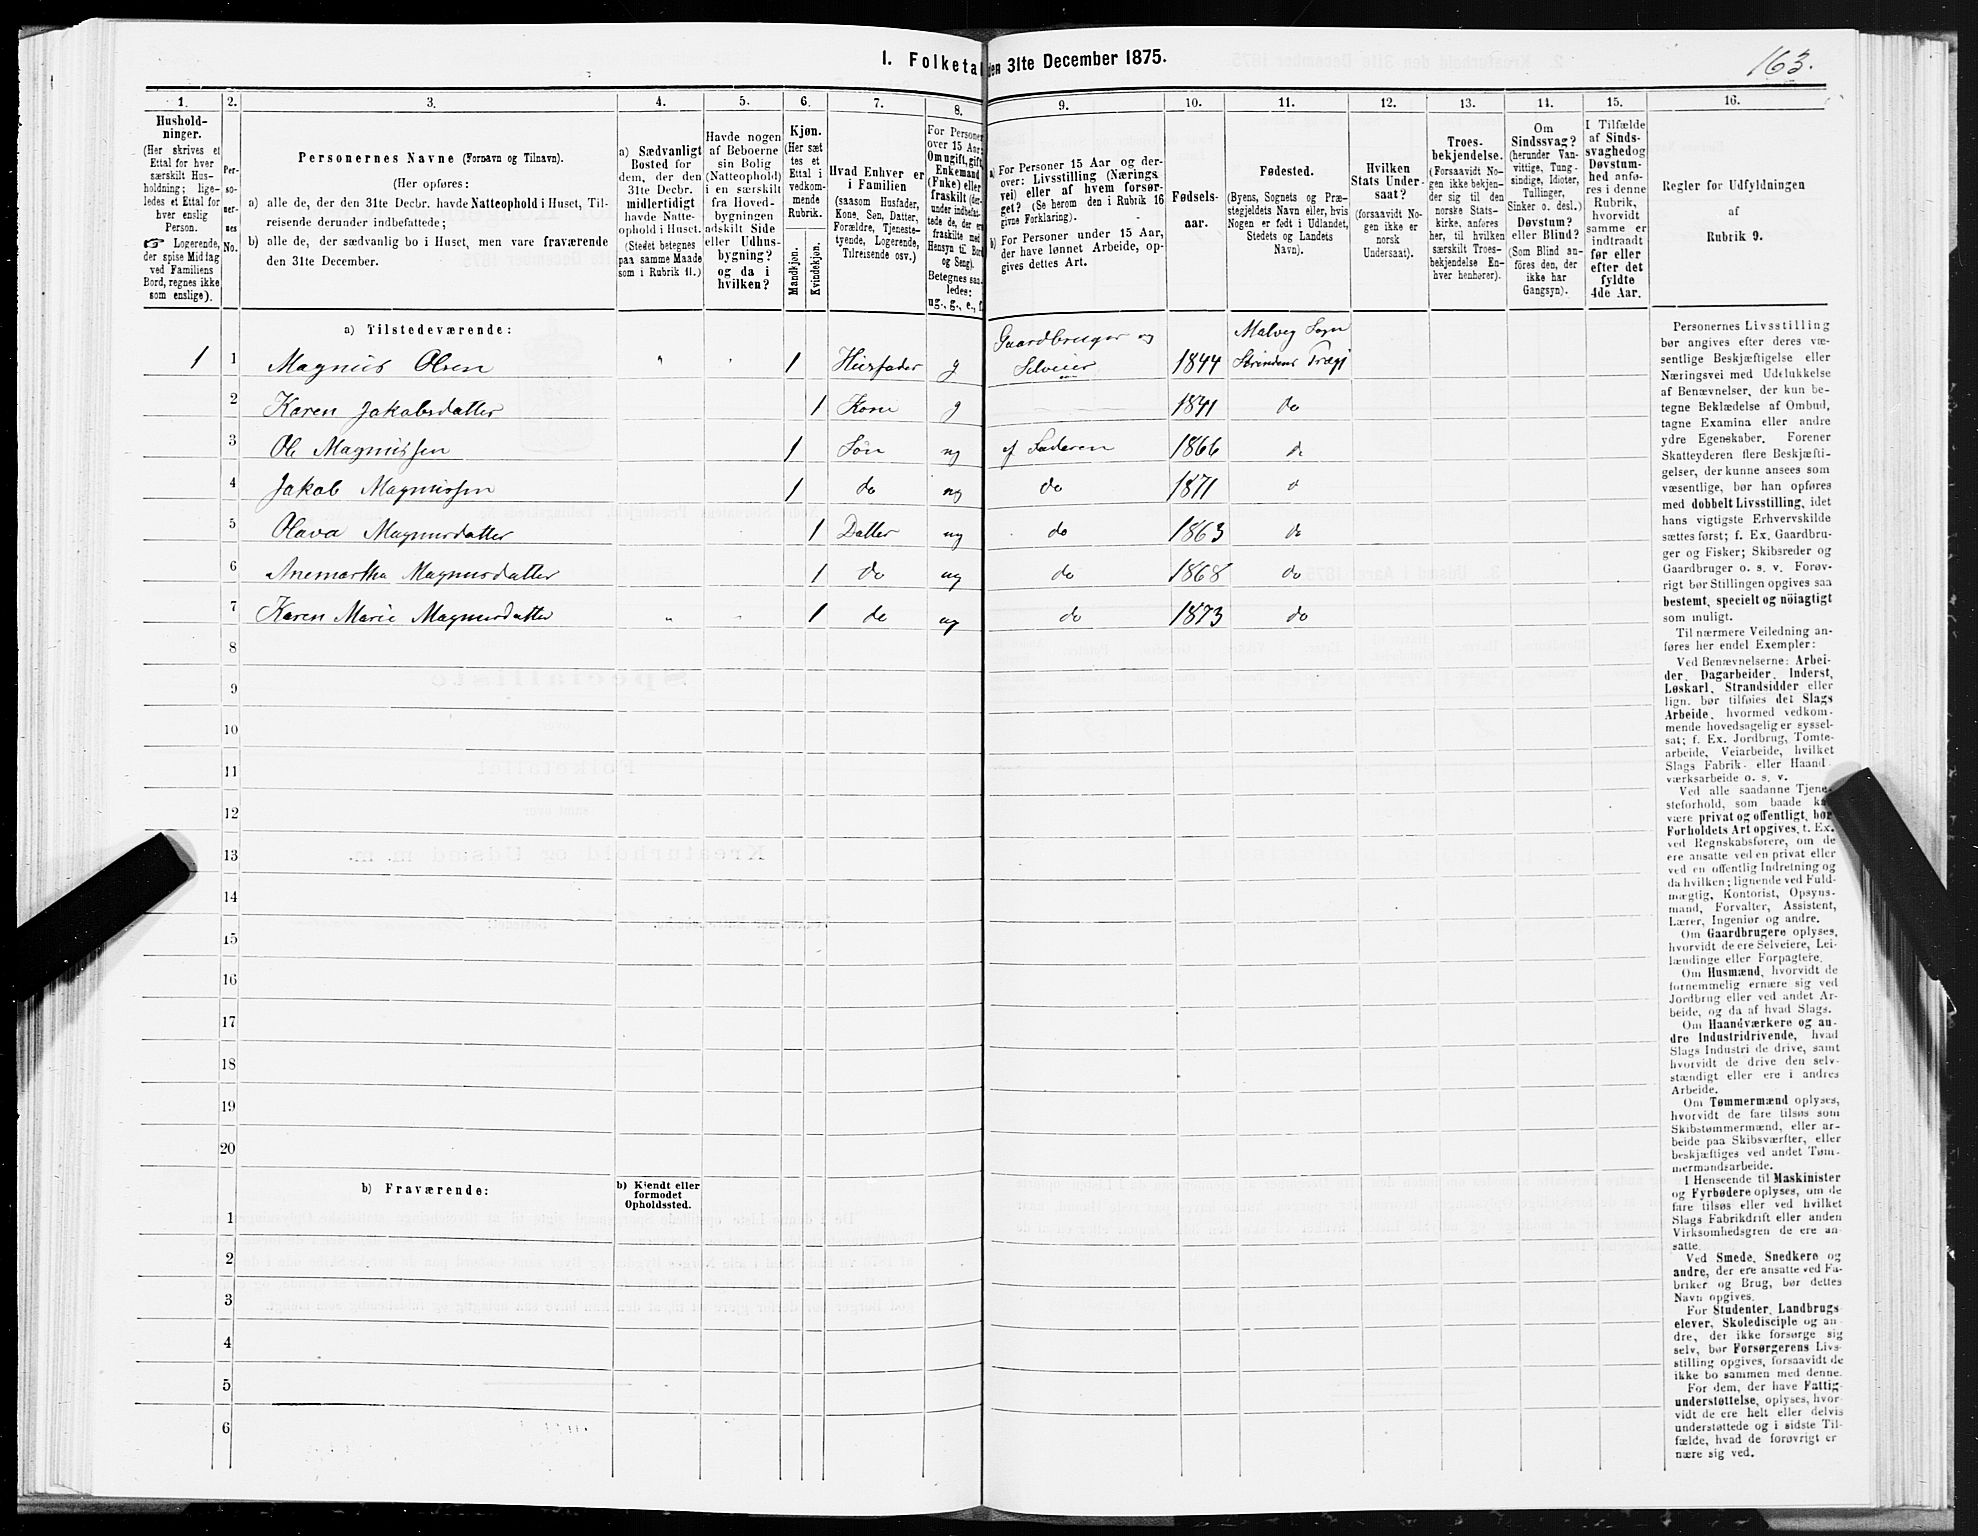 163.
I. Folketal den 31te December 1875.
1. 2. 3. 4. 5. 6. 7. 8. 9. 10. 11. 12. 13. 14. 15. 16.
Hushold-
ninger.
(Her skrives et
Ettal for hver
særskilt Hus-
holdning; lige-
ledes et Ettal for
hver enslig
Person.
☞ Logerende,
der spise Middag
ved Familiens
Bord, regnes ikke
som enslige).
Per-
so-
ner-
nes
No.
Personernes Navne (Fornavn og Tilnavn).
(Her opføres:
a) alle de, der den 31te Decbr. havde Natteophold i Huset, Til-
reisende derunder indbefattede;
b) alle de, der sædvanlig bo i Huset, men vare fraværende
den 31te December.
a) Sædvanligt
Bosted for
dem, der den
31te Decbr.
midlertidigt
havde Natte-
ophold i Huset.
(Stedet betegnes
paa samme Maade
som i Rubrik 11.)
Havde nogen
af Beboerne
sin Bolig
(Natteophold)
i en særskilt
fra Hoved-
bygningen
adskilt Side
eller Udhus-
bygning?
og da i
hvilken?
Kjøn.
(Her sæt-
tes et
Ettal i
vedkom-
mende
Rubrik.
Mandkjøn.
Kvindekjøn.
Hvad Enhver er
i Familien
(saasom Husfader,
Kone, Søn, Datter,
Forældre, Tjeneste-
tyende, Logerende,
Tilreisende osv.)
For Personer
over 15 Aar:
Om ugift, gift,
Enkemand
(Enke) eller
fraskilt (der-
under indbefat-
tede de, der ere
fraskilte med
Hensyn til Bord
og Seng).
Betegnes saa-
ledes:
ug., g., e., f.
a) For Personer 15 Aar og der-
over: Livsstilling (Nærings-
vei) eller af hvem forsør-
get? (Se herom den i Rubrik 16
givne Forklaring).
b) For Personer under 15 Aar,
der have lønnet Arbeide, op-
gives dettes Art.
Fødsels-
aar.
Fødested.
(Byens, Sognets og Præ-
stegjeldets Navn eller, hvis
Nogen er født i Udlandet,
Stedets og Landets
Navn).
Hvilken
Stats Under-
saat?
(forsaavidt No-
gen ikke er
norsk
Undersaat).
Troes-
bekjendelse.
(Forsaavidt No-
gen ikke bekjen-
der sig til den
norske Stats-
kirke, anføres
her, til hvilken
særskilt Troes-
bekjendelse En-
hver henhører).
Om
Sindssvag?
(herunder Van-
vittige, Tung-
sindige, Idioter,
Tullinger,
Sinker o. desl.)
Døvstum?
eller Blind?
(Som Blind an-
føres den, der
ikke har
Gangsyn).
I Tilfælde
af Sinds-
svaghed og
Døvstum-
hed anfø-
res i denne
Rubrik,
hvorvidt
samme er
indtraadt
før eller
efter det
fyldte
4de Aar.
Regler for Udfyldningen
af
Rubrik 9.
a) Tilstedeværende:
1 1 Magnus Olsen " " 1 Husfader g Gaardbruger og Selveier 1844 Malvig Sogn Strindens Prægj
2 Karen Jakobsdatter 1 Kone g 1841 do
3 Ole Magnussen 1 Søn ug af Faderen 1866 d
4 Jakob Magnussen 1 do ug do 1871 d
5 Olava Magnusdatter 1 Datter ug do 1863 do
6 Anemartha Magnusdatter 1 do ug do 1868 do
7 Karen Marie Magnusdatter " " 1 do ug do 1873 do
8
9
10
11
12
13
14
15
16
17
18
19
20
b) Fraværende:
b) Kjendt eller
formodet
Opholdssted.
1
2
3
4
5
6
Personernes Livsstilling
bør angives efter deres væ-
sentlige Beskjæftigelse eller
Næringsvei med Udelukkelse
af Benævnelser, der kun be-
tegne Beklædelse af Ombud,
tagne Examina eller andre
ydre Egenskaber. Forener
Skatteyderen flere Beskjæfti-
gelser, der kunne ansees som
væsentlige, bør han opføres
med dobbelt Livsstilling, idet
hans vigtigste Erhvervskilde
sættes først; f. Ex. Gaardbru-
ger og Fisker; Skibsreder og
Gaardbruger o. s. v. Forøv-
rigt bør Stillingen opgives saa
bestemt, specielt og nöiagtigt
som muligt.
Til nærmere Veiledning an-
føres her endel Exempler:
Ved Benævnelserne: Arbei-
der, Dagarbeider, Inderst,
Løskarl, Strandsidder eller
lign. bør tilføies det Slags
Arbeide, hvormed vedkom-
mende hovedsagelig er syssel-
sat; f. Ex. Jordbrug, Tomte-
arbeide, Veiarbeide, hvilket
Slags Fabrik- eller Haand-
værksarbeide o. s. v.
Ved alle saadanne Tjene-
steforhold, som baade kan
være privat og offentligt, bør
Forholdets Art opgives, t. Ex.
ved Regnskabsførere, om de
ere ansatte ved en privat eller
ved en offentlig Indretning og
da hvilken; lignende ved Fuld-
mægtig, Kontorist, Opsyns-
mand, Forvalter, Assistent,
Lærer, Ingeniør og andre.
Om Gaardbrugere oplyses,
hvorvidt de ere Selveiere, Lei-
lændinge eller Forpagtere.
Om Husmænd, hvorvidt de
fornemmelig ernære sig ved
Jordbrug eller ved andet Ar-
beide, og da af hvad Slags.
Om Haandværkere og an-
dre Industridrivende, hvad
Slags Industri de drive, samt
hvorvidt de drive den selv-
stændigt eller ere i andres
Arbeide.
Om Tømmermænd oplyses,
hvorvidt de fare tilsøs som
Skibstømmermænd, eller ar-
beide paa Skibsværfter, eller
beskjæftiges ved andet Tøm-
mermandsarbeide.
I Henseende til Maskinister
og Fyrbødere oplyses, om de
fare tilsøs eller ved hvilket
Slags Fabrikdrift eller anden
Virksomhedsgren de ere an-
satte.
Ved Smede, Snedkere og
andre, der ere ansatte ved Fa-
briker og Brug, bør dettes
Navn opgives.
For Studenter, Landbrugs-
elever, Skoledisciple og an-
dre, der ikke forsørge sig
selv, bør Forsørgerens Livs-
stilling opgives, forsaavidt de
ikke bo sammen med denne.
For dem, der have Fattig-
understøttelse, oplyses, hvor-
vidt de ere helt eller delvis
understøttede og i sidste Til-
fælde, hvad de forøvrigt er-
nære sig ved.